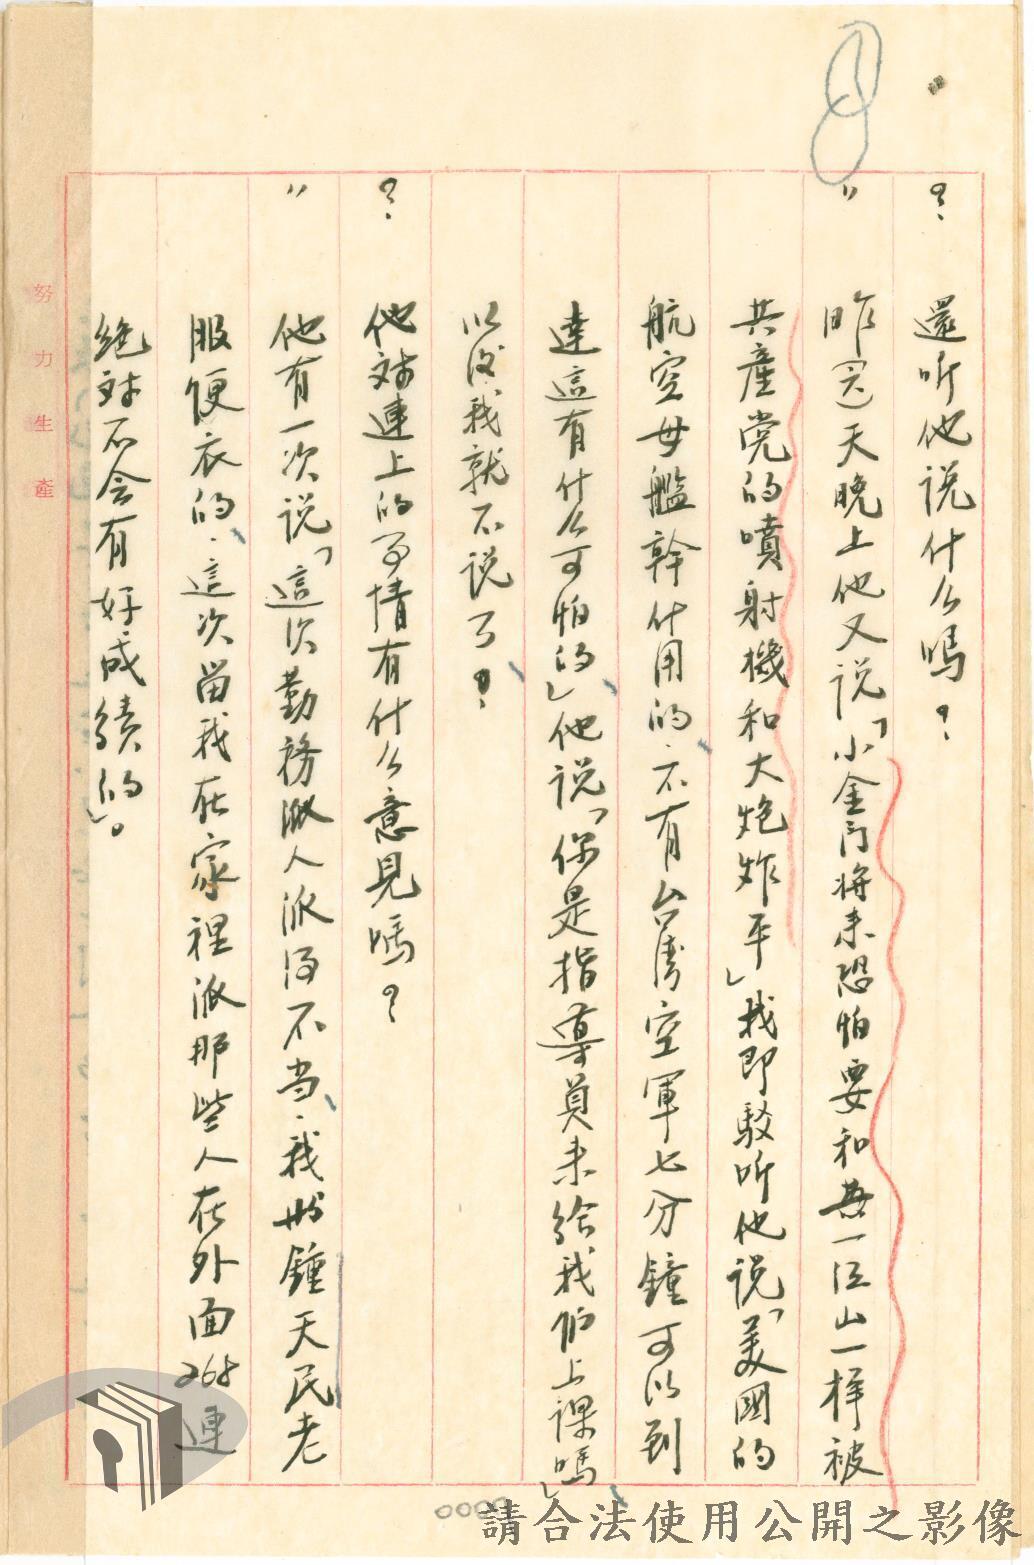 ？ 還听他说什么嗎？
〃 昨(天)天晚上他又说「小金门将来恐怕要和一江山一样被
共產党的噴射機和大炮炸平」我即駁听他说「美國的
航空母艦幹什用的、不有台湾空軍七分鐘可以到
達這有什么可怕的」他说「你是指導員来给我们上課嗎」
以後我就不说了？
？ 他对連上的事情有什么意見嗎？
〃 他有一次说「這次勤務派人派得不当、我鍾天民老
服便衣的、這次留我在家裡派那些人在外面268連
绝对不会有好成績的」。
努力生產
0000
請合法使用公開之影像